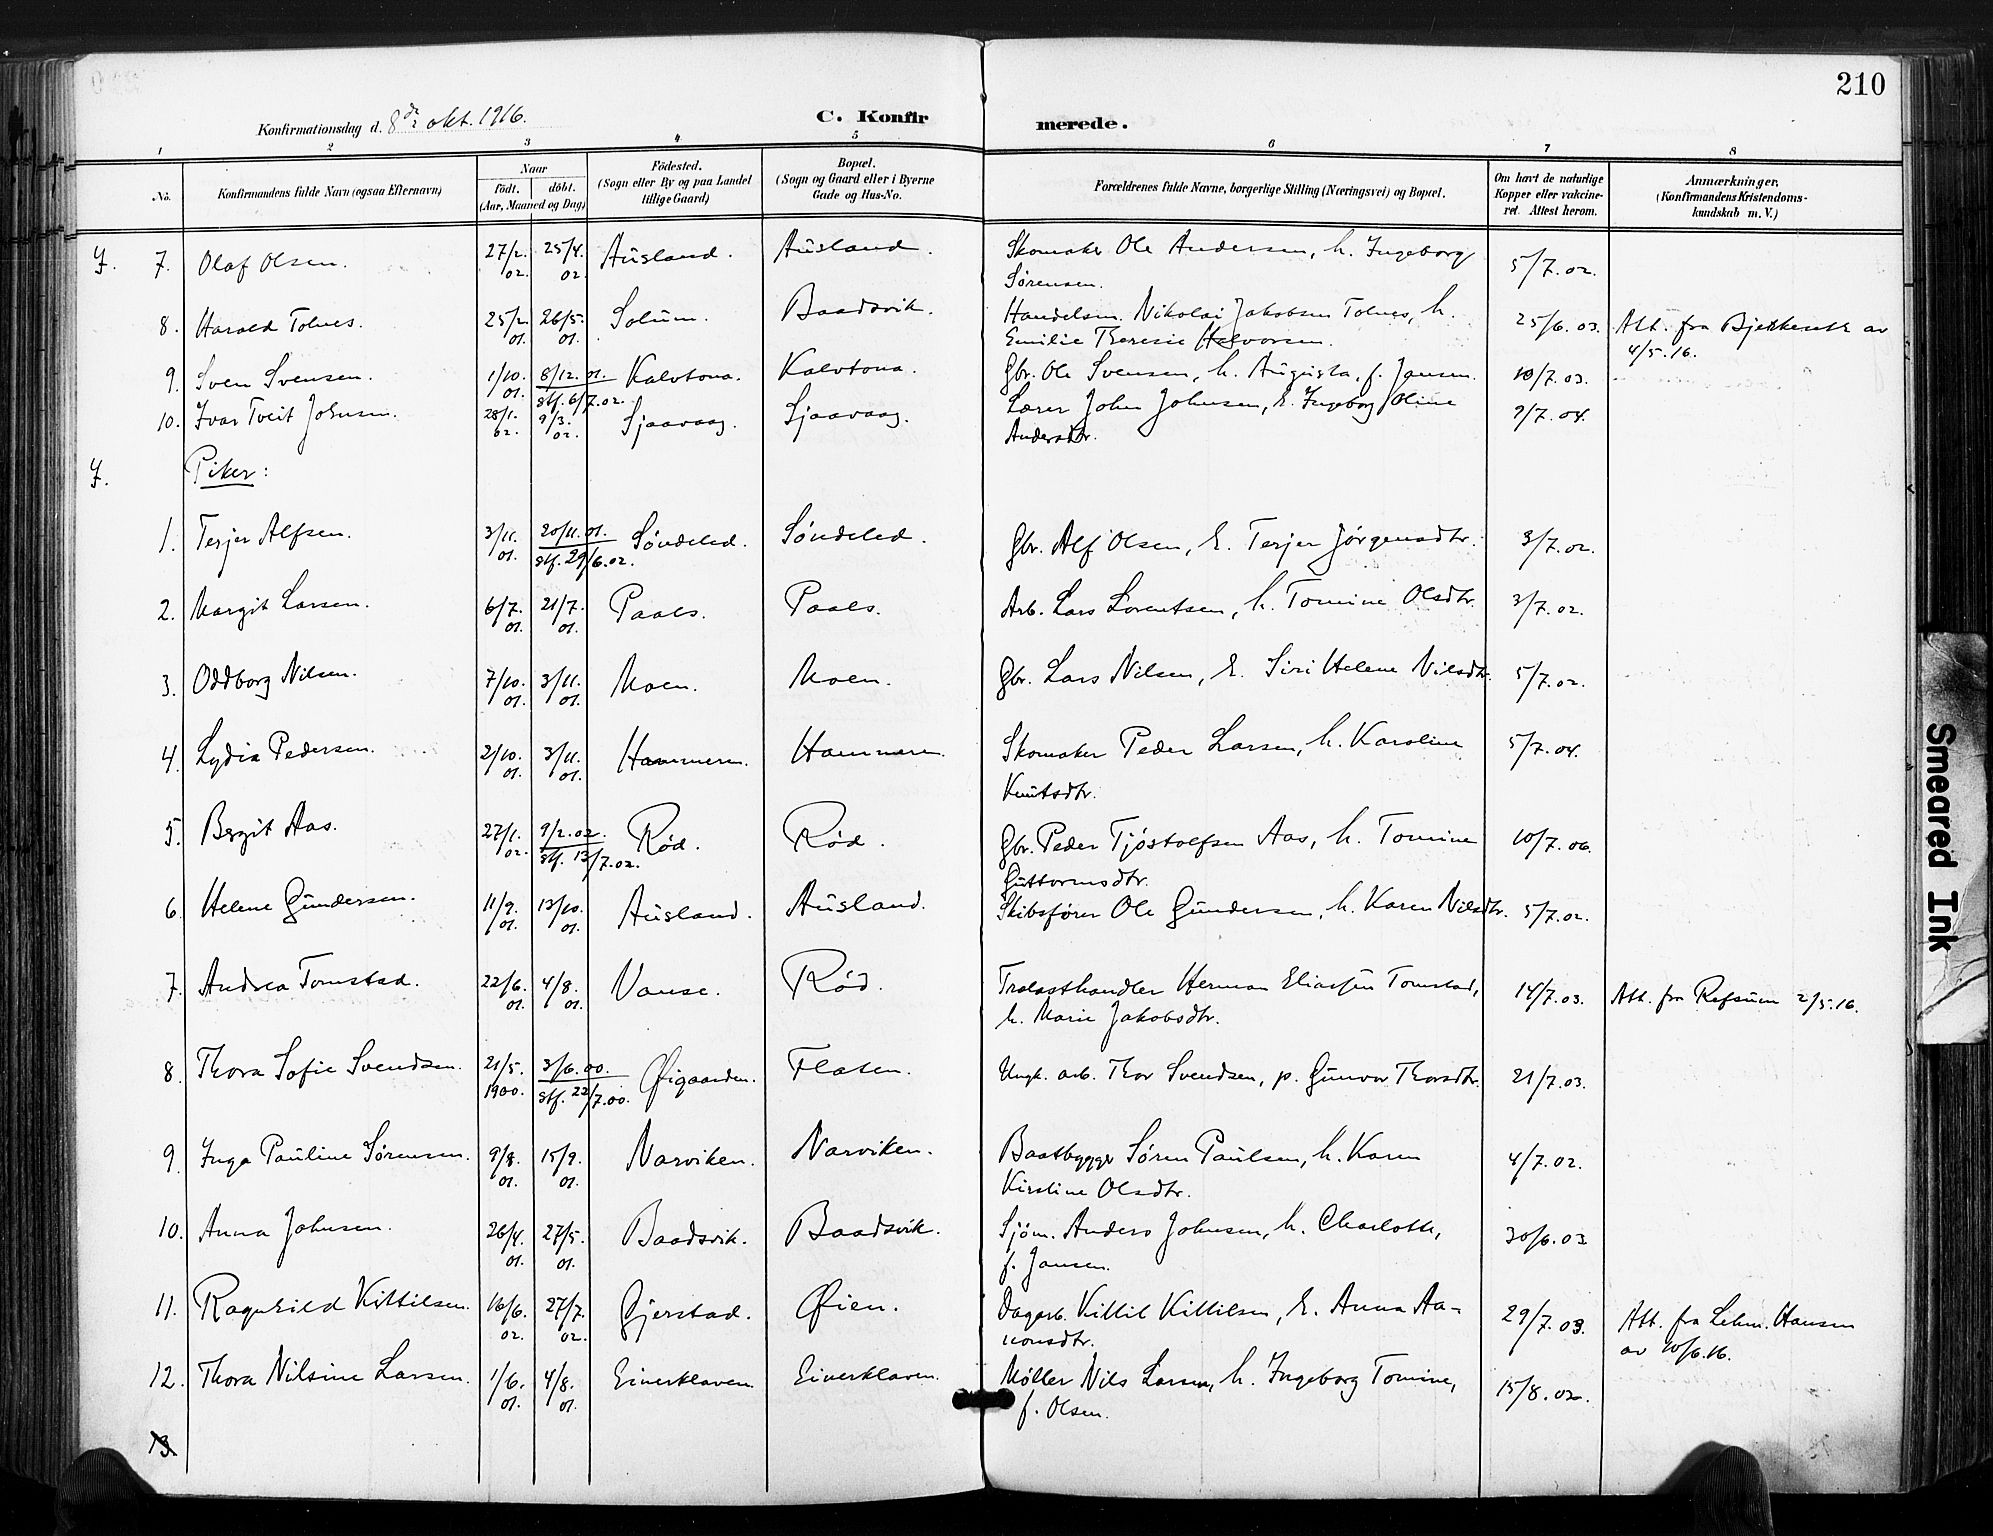 210
Konfirmationsdag d. 8de okt. 1916.
C. Konfirmerede.
1 2 3 4 5 6 7 8
No.
Konfirmandens fulde Navn (ogsaa Efternavn)
Naar
födt. döbt.
(Aar, Maaned og Dag)
Födested.
(Sogn eller By og paa Landet
tillige Gaard)
Bopæl.
(Sogn og Gaard eller i Byerne
Gade og Hus-No.
Forældrenes fulde Navne, borgerlige Stilling (Næringsvei) og Bopæl.
Om havt de naturlige
Kopper eller vakcine-
ret. Attest herom.
Anmærkninger,
(Konfirmandens Kristendoms-
kundskab m. V.)
7. Olaf Olsen. 27/2. 02. 25/4. 02. Ausland. Ausland. Skomaker Ole Andersen, h. Ingeborg
Sørensen. 5/7. 02.
8. Harald Tolnes. 25/2. 01. 26/5. 01. Solum. Baadsvik. Handelsm. Nikolai Jakobsen Tolnes, h.
Emilie Theresie Halvorsen. 25/6. 03. Att. fra Bjerkeseth av
4/5. 16.
9. Sven Svensen. 1/10. 01. 8/12. 01. stf. 6/7. 02. Kalvtona. Kalvtona. Gbr. Ole Svensen, h. Augusta, f. Jansen. 10/7. 03.
10. Ivar Tveit Johnsen. 28/1. 02. 9/3. 02. Sjaavaag. Sjaavaag. Lærer John Johnsen, E. Ingeborg Oline
Andersdtr. 9/7. 04.
Piker:
1. Terjer Alfsen. 3/11. 01. 20/11. 01. stf. 29/6. 02. Søndeled. Søndeled. Gbr. Alf Olsen, E. Terjer Jørgensdtr. 3/7. 02.
2. Margit Larsen. 6/7. 01. 21/7. 01. Paals. Paals. Arb. Lars Lorentsen, h. Tomine Olsdtr. 3/7. 02.
3. Oddborg Nilsen. 7/10. 01. 3/11. 01. Moen. Moen. Gbr. Lars Nilsen, E. Siri Helene Nilsdtr. 5/7. 02.
4. Lydia Pedersen. 2/10. 01. 3/11. 01. Hammeren. Hammeren. Skomaker Peder Larsen, h. Karoline
Knutsdtr. 5/7. 04.
5. Bergit Aas. 27/1. 02. 9/2. 02. stf. 13/7. 02. Rød. Rød. Gbr. Peder Tjøstolfsen Aas, h. Tomine
Guttormsdtr. 10/7. 06.
6. Helene Gundersen. 11/9. 01. 13/10. 01. Ausland. Ausland. Skibsfører Ole Gundersen, h. Karen Nilsdtr. 5/7. 02.
7. Andrea Tomstad. 22/6. 01. 4/8. 01. Vanse. Rød. Trælasthandler Herman Eliassen Tomstad,
h. Marie Jakobsdtr. 14/7. 03. Att. fra Refsum 2/5. 16.
8. Thora Sofie Svendsen. 21/5. 1900. 3/6. 00. stf. 22/7. 00. Øigaarden. Flaten. Ungk. arb. Thor Svendsen, p. Gunvor Thorsdtr. 21/7. 03.
9. Inga Pauline Sørensen. 9/8. 01. 15/9. 01. Narviken. Narviken. Baatbygger Søren Paulsen, h. Karen
Kirstine Olsdtr. 4/7. 02.
10. Anna Johnsen. 26/4. 01. 27/5. 01. Baadsvik. Baadsvik. Sjøm. Anders Johnsen, h. Charlotte,
f. Jansen. 30/6. 03
11. Ragnhild Kittilsen. 16/6. 02. 27/7. 02. Gjerstad. Øien. Dagarb. Kittil Kittilsen, E. Anna Aa-
nonsdtr. 29/7. 03. Att. fra Lehm. Hansen
av 10/6. 16.
12. Thora Nilsine Larsen. 1/6. 01. 4/8. 01. Eiverklaven. Eiverklaven. Møller Nils Larsen, h. Ingeborg Tomine,
f. Olsen. 15/8. 02.
13.
Smeared Ink